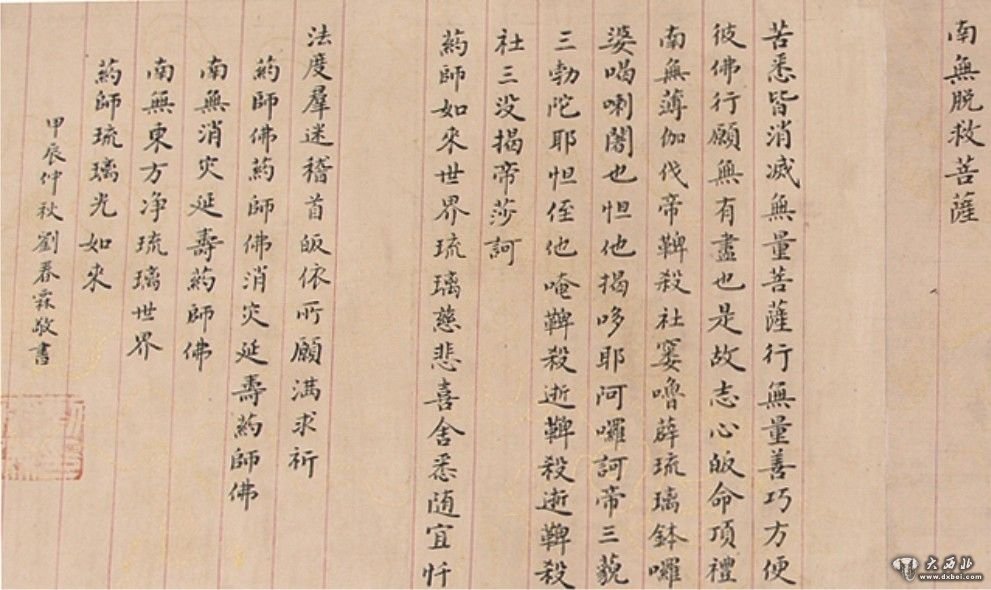 南無脱救菩薩
苦悉皆消滅無量菩薩行無量善巧方便
彼佛行願無有盡也是故志心皈命頂禮
南無薄伽伐帝鞞殺社窶嚕薜琉璃鉢囉
婆喝喇闍也怛他揭哆耶阿囉訶帝三藐
三勃陀耶怛侄他唵鞞殺逝鞞殺逝鞞殺
社三没揭帝莎訶
药師如來世界琉璃慈悲喜舍悉随宜忏
法度羣迷稽首皈依所願满求祈
药師佛药師佛消灾延壽药師佛
南無消灾延壽药師佛
南無東方净琉璃世界
药師琉璃光如來
甲辰仲秋劉春霖敬書
大西北
www.dxbei.com